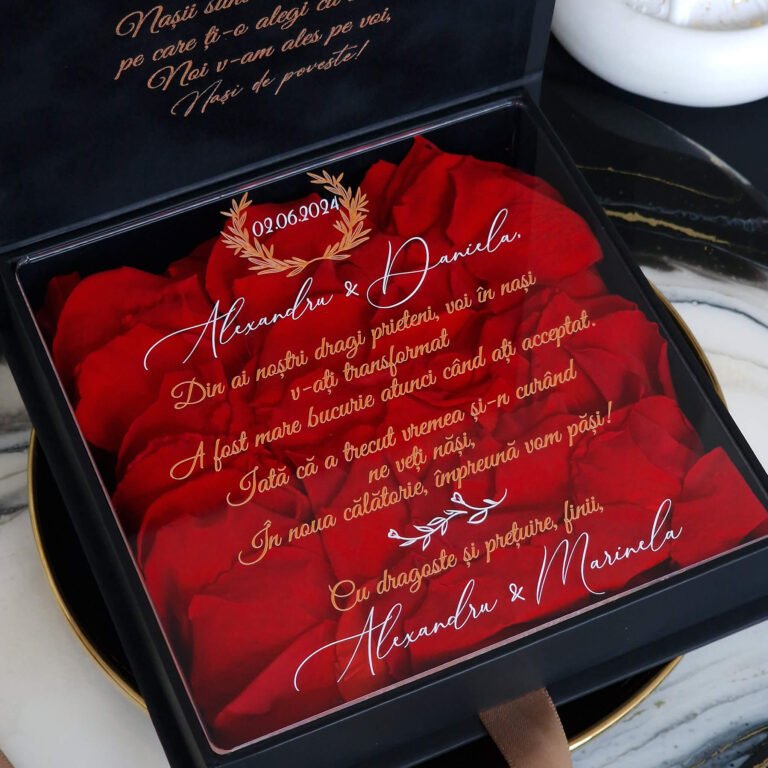 Nașii sunt
pe care ți-o alegi
Noi v-am ales pe voi,
Nași de poveste!
02.06.2024
Alexandru & Daniela,
Din ai noștri dragi prieteni, voi în nași
v-ați transformat
A fost mare bucurie atunci când ați acceptat.
Iată că a trecut vremea și-n curând
ne veți năși,
În noua călătorie, împreună vom păși!
Cu dragoste și prețuire, finii,
Alexandru & Marinela